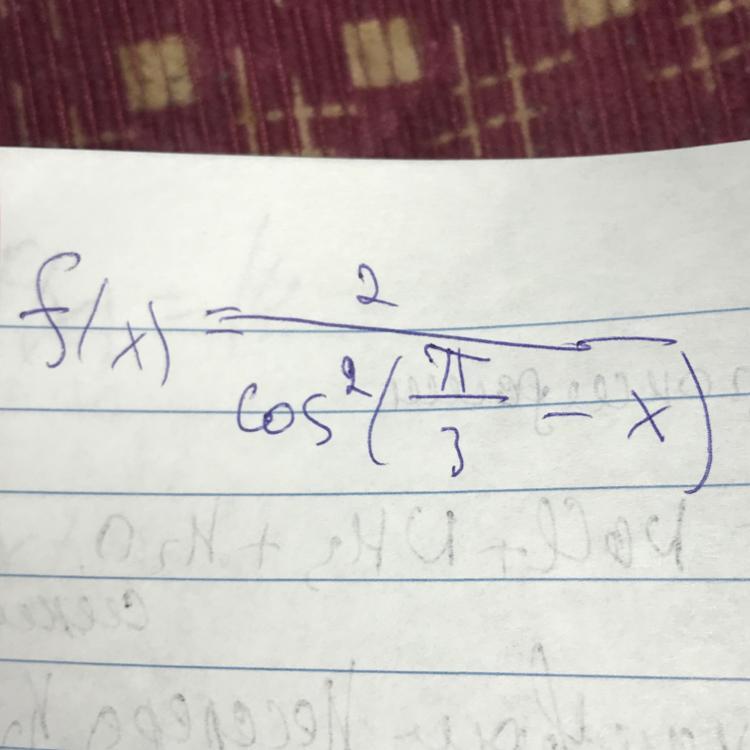 f(x) = 2 / cos²(π/3 - x)